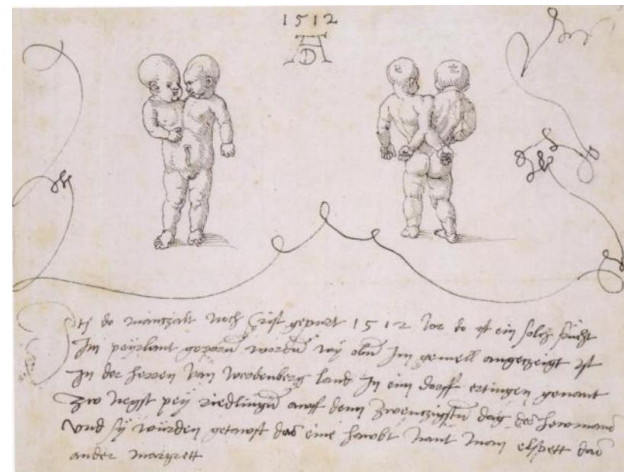 1512
AD
Itz do man zalt noch Crist gepurt 1512 Jor do ist ein solch frucht
Im peyrlant geporn worden wy obn Im gemell angezeigt ist
In der herren van werdenberg land In eim dorff ertingen genant
zw negst pey riedlingen auff denn zwenzigsten dag des hewmanc
vnd sy wurden getawft das eine hawbt nant man elspett das
ander margrett